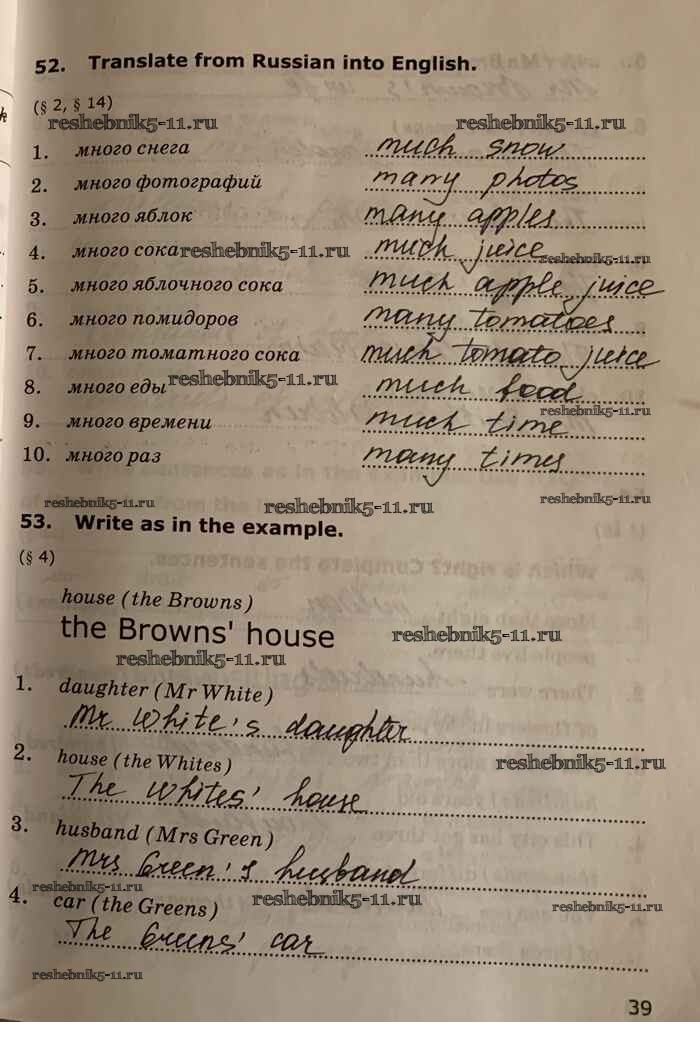 52. Translate from Russian into English.
(§ 2, § 14)
reshebnik5-11.ru reshebnik5-11.ru
1. много снега much snow
2. много фотографий many photos
3. много яблок many apples
4. много сока reshebnik5-11.ru much juice reshebnik5-11.ru
5. много яблочного сока much apple juice
6. много помидоров many tomatoes
7. много томатного сока much tomato juice
8. много еды reshebnik5-11.ru much food
reshebnik5-11.ru
9. много времени much time
10. много раз many times
reshebnik5-11.ru reshebnik5-11.ru reshebnik5-11.ru
53. Write as in the example.
(§ 4)
house (the Browns)
the Browns' house reshebnik5-11.ru
reshebnik5-11.ru
1. daughter (Mr White)
Mr White's daughter
2. house (the Whites) reshebnik5-11.ru
The Whites' house
3. husband (Mrs Green)
Mrs Green's husband
reshebnik5-11.ru reshebnik5-11.ru reshebnik5-11.ru
4. car (the Greens)
The Greens' car
reshebnik5-11.ru
39